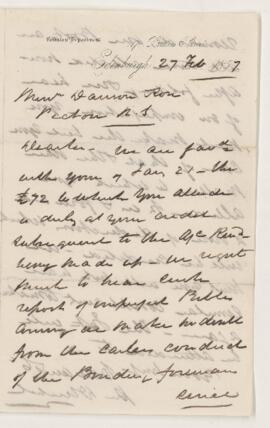 Edinburgh 27 Feb 1857
Messrs Dawson & Son
Pictou N.S
Dear Sirs We are favd
with yours of Jany 21 - the
£92 to which you allude
is duly at your credit
subsequent to the a/c
being made up - we regret
much to hear such
report of imperfect Bibles
arising we make no doubt
from the careless conduct
of the Binding foreman